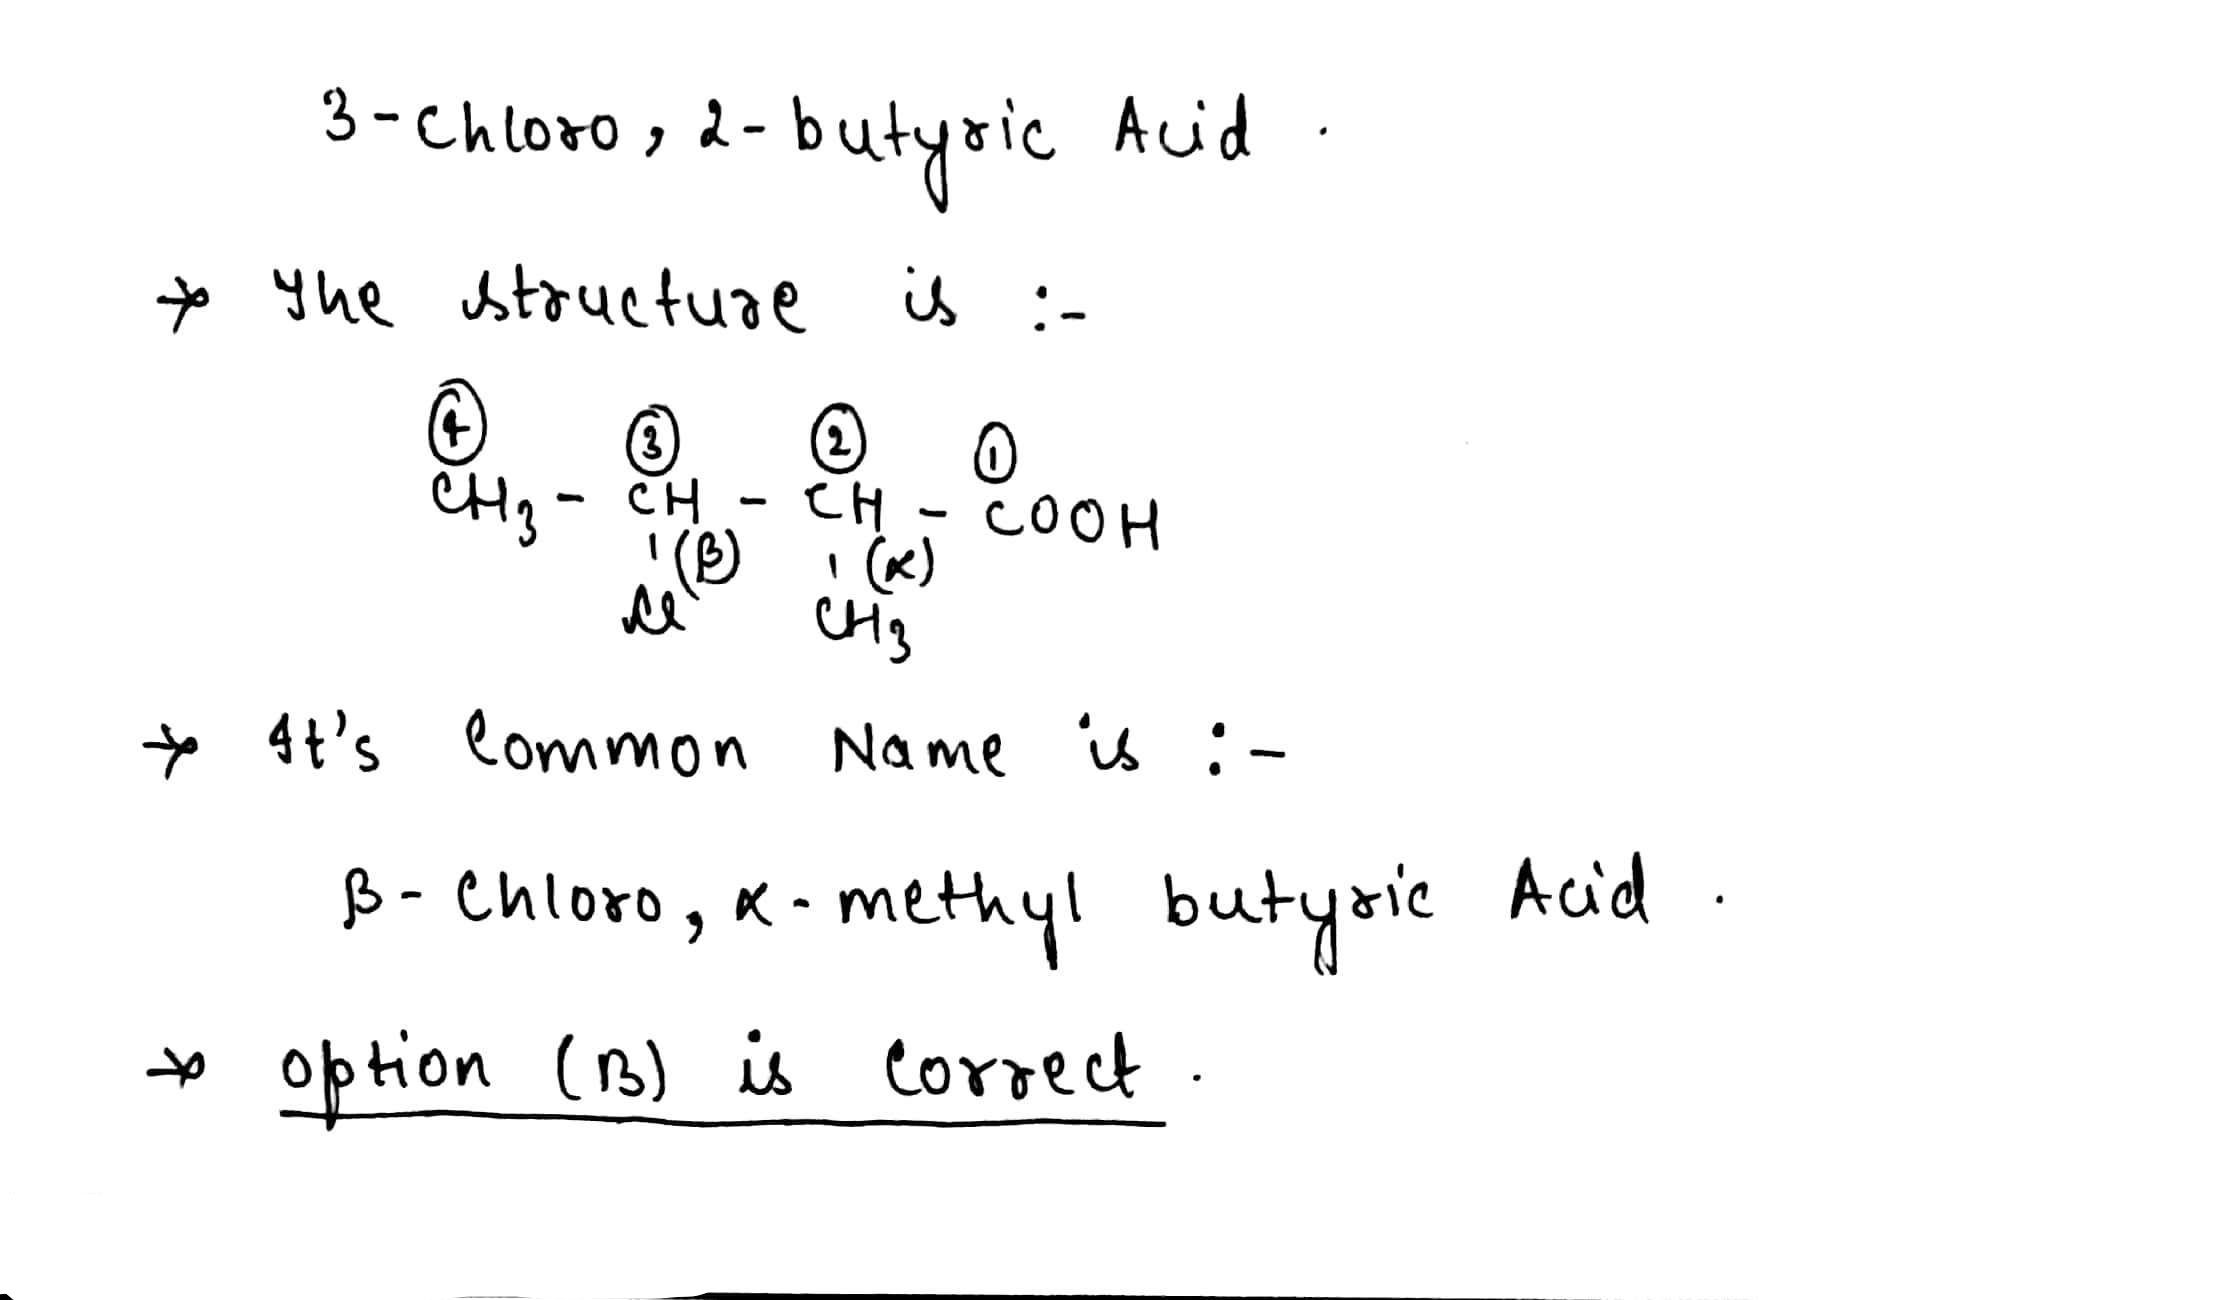 3-Chloro, 2-butyric Acid.
→ The structure is :-
④ ③ ② ①
CH₃ - CH - CH - COOH
(β) (α)
Cl CH₃
→ It's Common Name is :-
β-Chloro, α-methyl butyric Acid.
→ option (B) is correct.